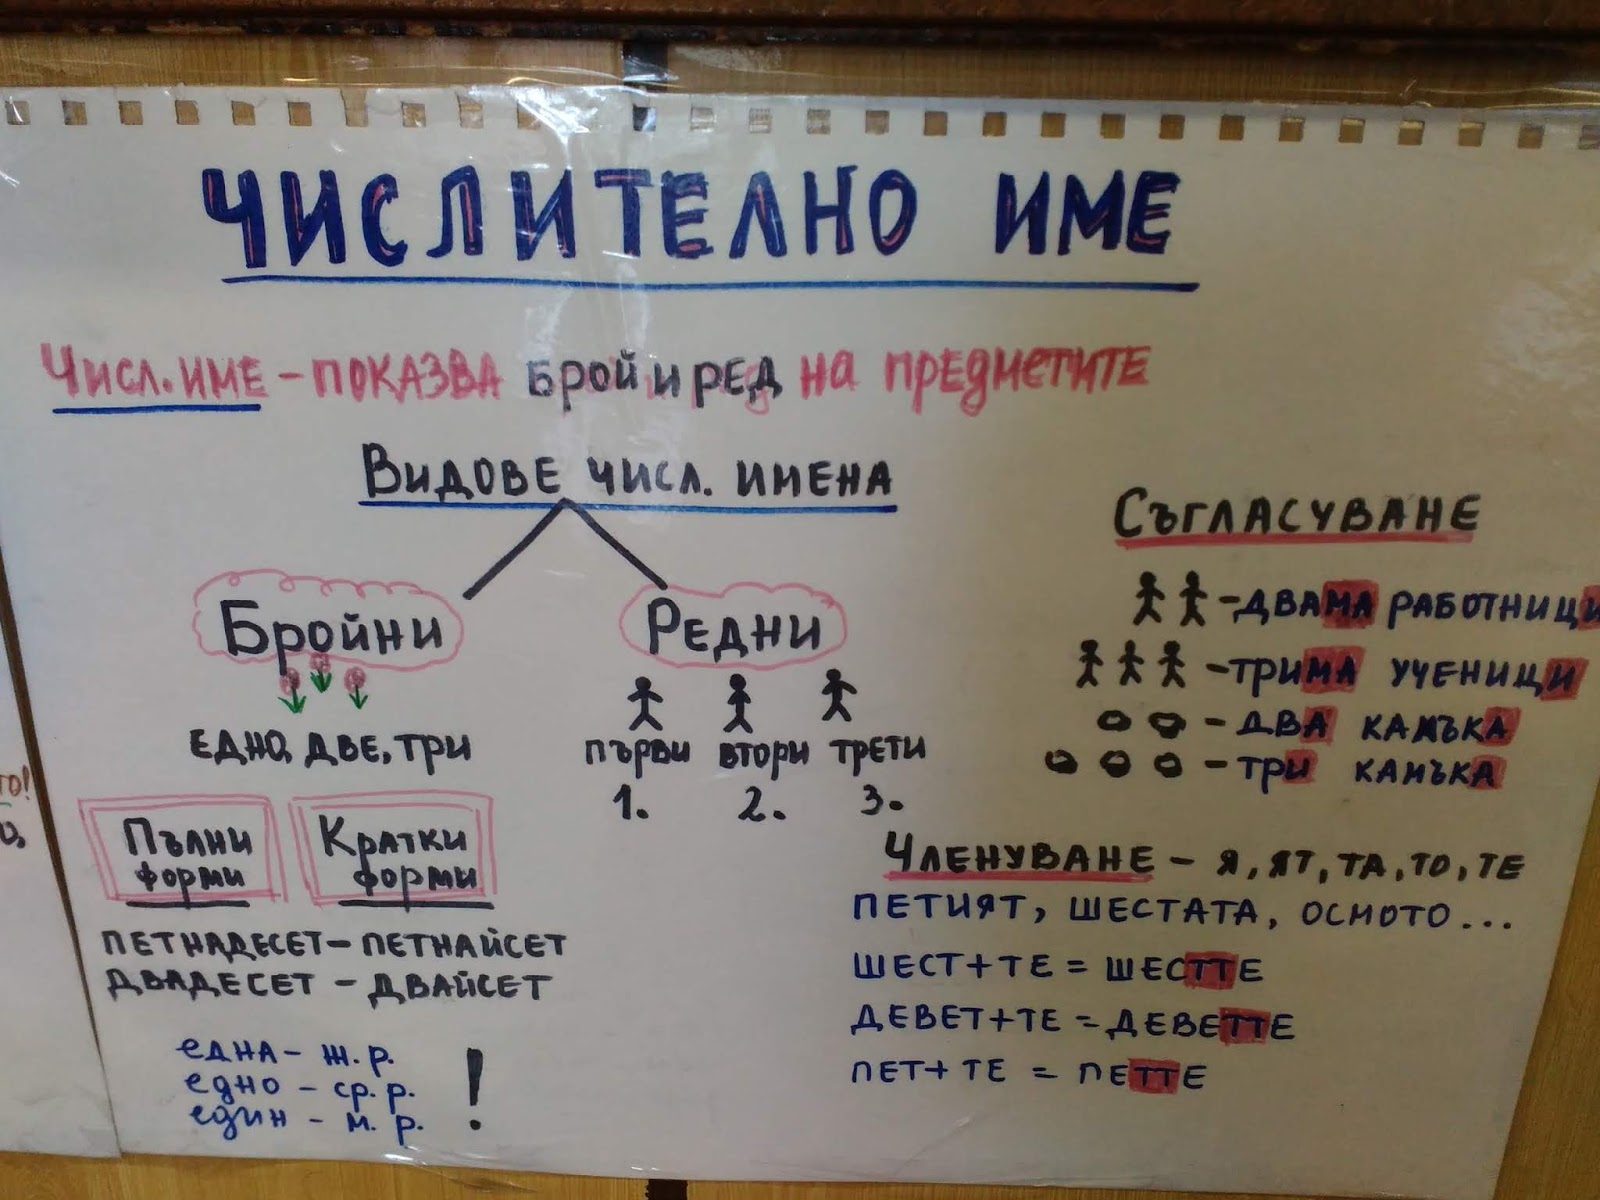 ЧИСЛИТЕЛНО ИМЕ
Числ. ИМЕ – ПОКАЗВА БРОЙ И РЕД НА ПРЕДМЕТИТЕ
ВИДОВЕ ЧИСЛ. ИМЕНА
БРОЙНИ
РЕДНИ
ЕДНО, ДВЕ, ТРИ
ПЪРВИ ВТОРИ ТРЕТИ
1. 2. 3.
ПЪЛНИ ФОРМИ
КРАТКИ ФОРМИ
ПЕТНАДЕСЕТ – ПЕТНАЙСЕТ
ДВАДЕСЕТ – ДВАЙСЕТ
една – ж. р.
едно – ср. р.
един – м. р.
!
СЪГЛАСУВАНЕ
– ДВАМА РАБОТНИЦИ
– ТРИМА УЧЕНИЦИ
– ДВА КАМЪКА
– ТРИ КАМЪКА
ЧЛЕНУВАНЕ – Я, ЯТ, ТА, ТО, ТЕ
ПЕТИЯТ, ШЕСТАТА, ОСМОТО...
ШЕСТ+ТЕ = ШЕСТТЕ
ДЕВЕТ+ТЕ = ДЕВЕТТЕ
ПЕТ+ТЕ = ПЕТТЕ